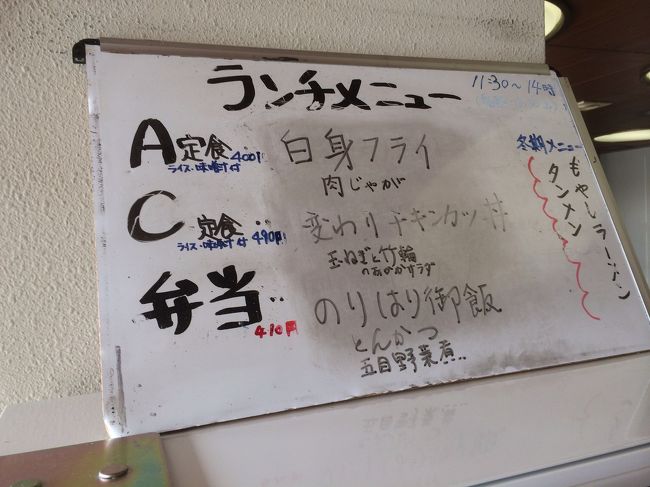 ランチメニュー
11:30〜14時
A定食 400円
ライス・味噌汁付
白身フライ
肉じゃが
C定食 490円
ライス・味噌汁付
変わりチキンカツ丼
玉ねぎと竹輪
のおかかサラダ
弁当 410円
のりはり御飯
とんかつ
五目野菜煮
冬期メニュー
もやしラーメン
タンメン